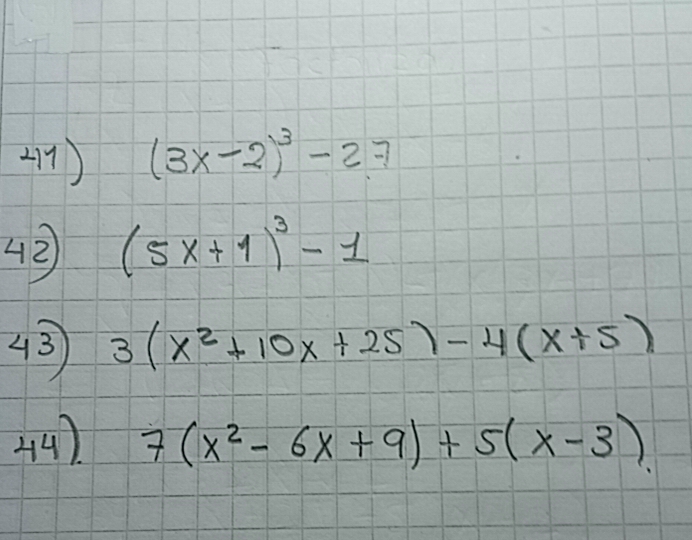 41) (3x-2)³ - 27
42) (5x+1)³ - 1
43) 3(x²+10x+25) - 4(x+5)
44). 7(x² - 6x + 9) + 5(x-3).